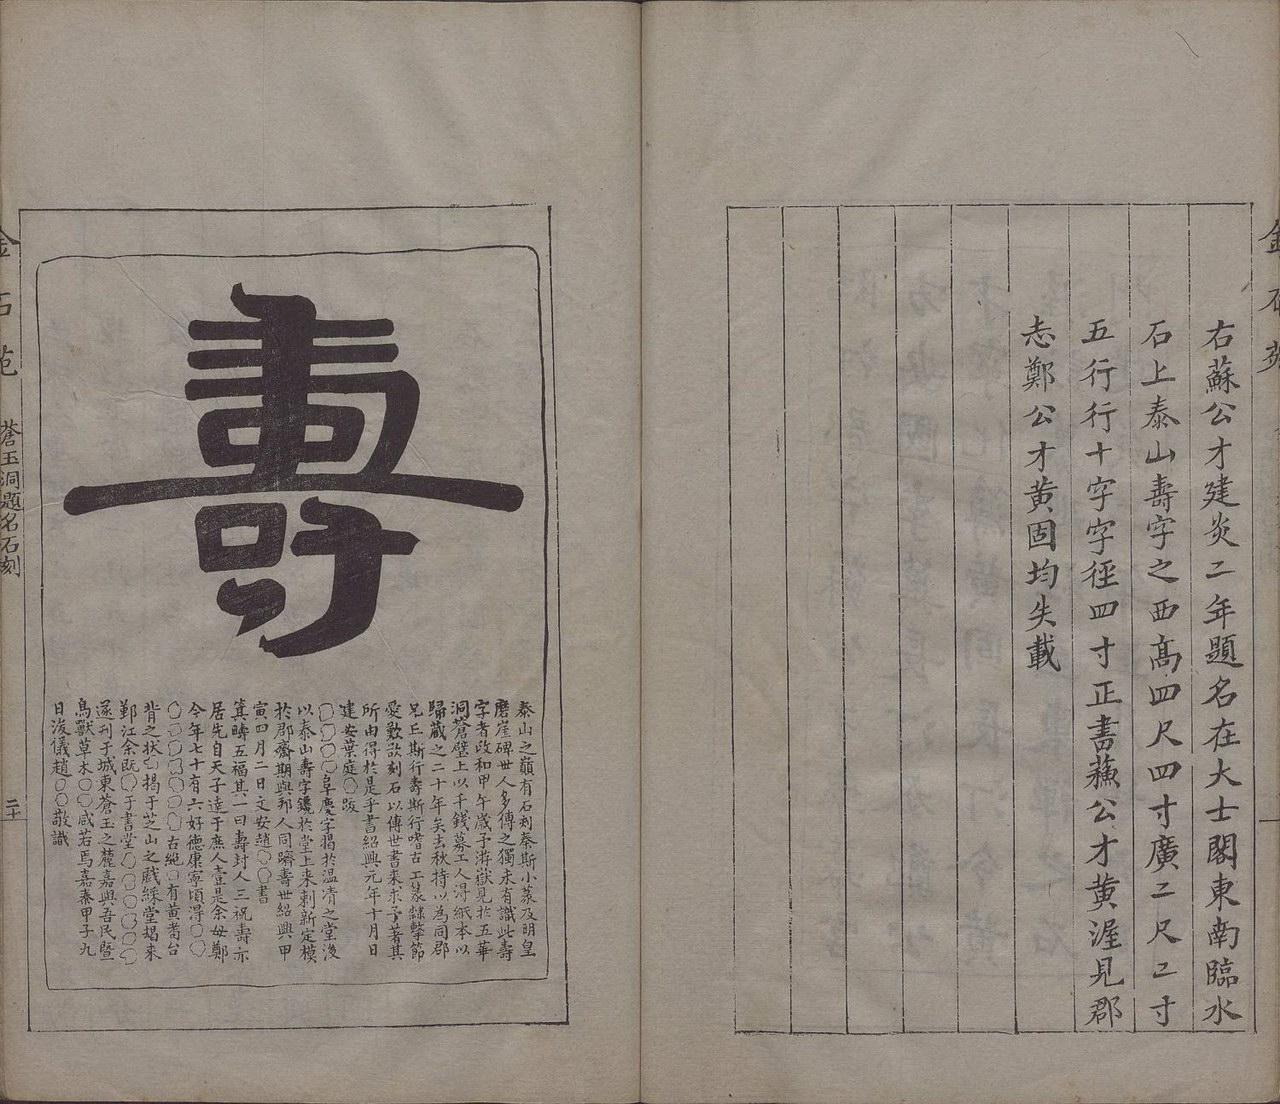 右蘇公才建炎二年題名在大士閣東南臨水
石上泰山壽字之西高四尺四寸廣二尺二寸
五行行十字字徑四寸正書蘓公才黄渥見郡
志鄭公才黄固均失載
金石苑
蒼玉洞題名石刻
二十
壽
泰山之巔有石刻秦斯小篆及明皇
磨崖碑世人多傳之獨未有識此壽
字者政和甲午歲予游嶽見於五華
洞蒼壁上以千錢募工人淂紙本以
歸藏之二十年矣去秋持以為同郡
兄丘斯行壽斯行嗜古工篆隸擊節
愛歎欲刻石以傳世書來求予著其
所由得於是乎書紹興元年十月日
建安葉庭〇䟦
〇〇〇〇阜慶字揭於温清之堂後
以泰山壽字鑱於堂上來刺新定模
於郡齋期與邦人同躋壽世紹興甲
寅四月二日文安趙〇〇書
箕疇五福其一曰壽封人三祝壽亦
居先自天子達于庶人壹是余母鄭
今年七十有六好德康寧頃淂〇〇
〇〇〇〇〇〇〇古絶〇有黄耇台
背之狀〇揭于芝山之戲綵堂朅來
鄞江余既〇于書堂〇〇〇〇〇〇
遂刊于城東蒼玉之麓嘉與吾民曁
鳥獸草木〇〇咸若焉嘉泰甲子九
日浚儀趙〇〇敬識